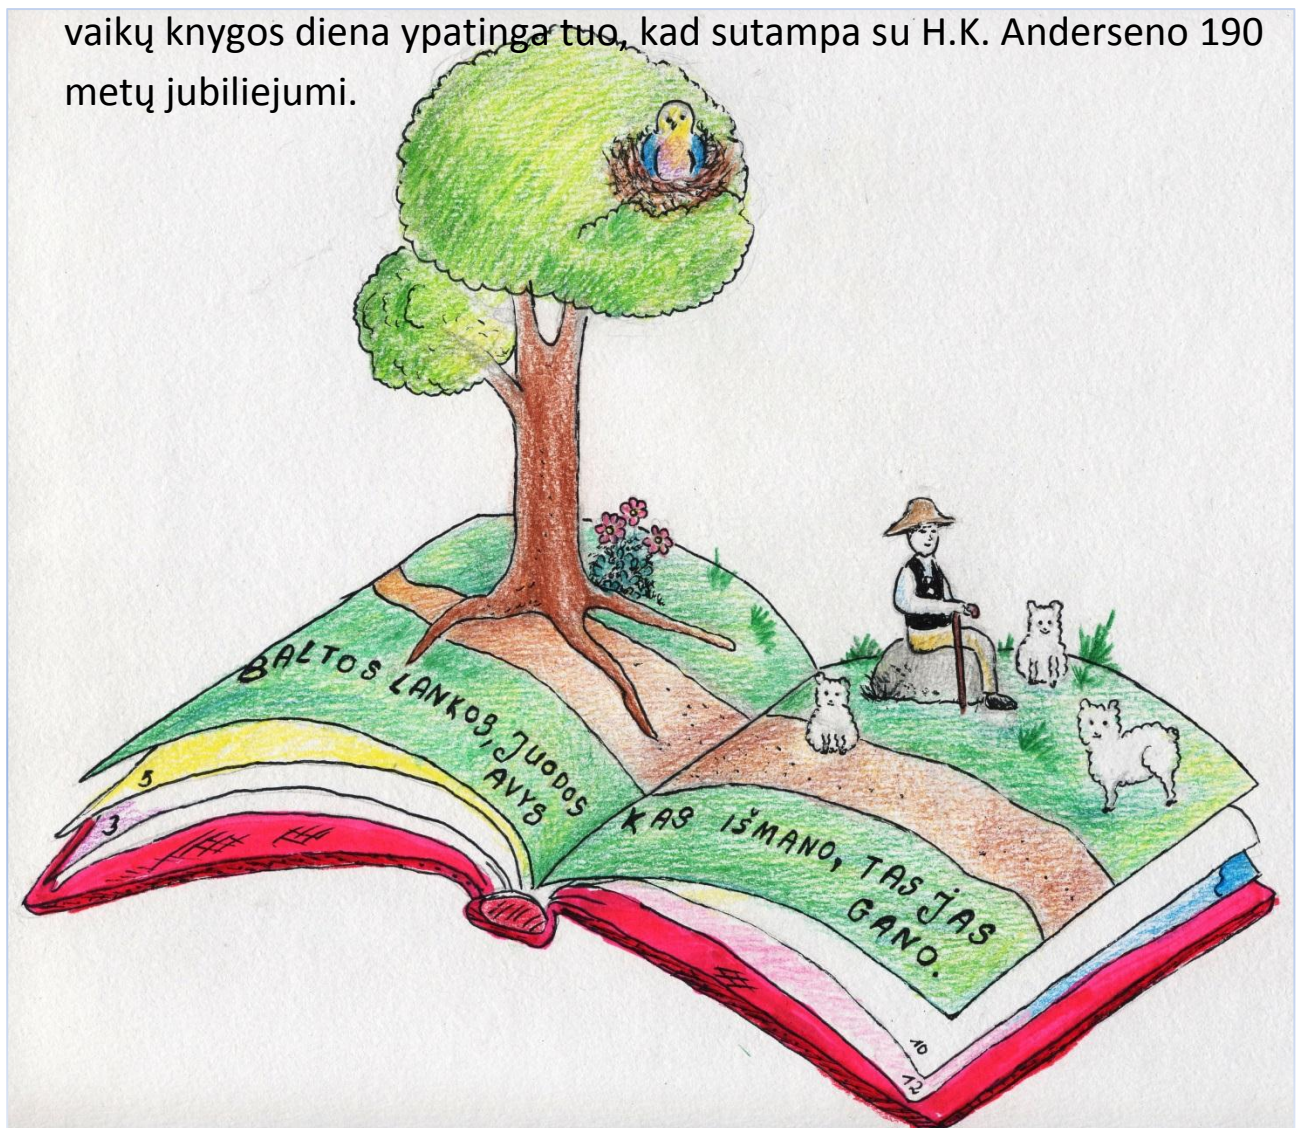 vaikų knygos diena ypatinga tuo, kad sutampa su H.K. Anderseno 190
metų jubiliejumi.
BALTOS LANKOS, JUODOS
AVYS
KAS IŠMANO, TAS JAS
GANO.
5
3
10
12